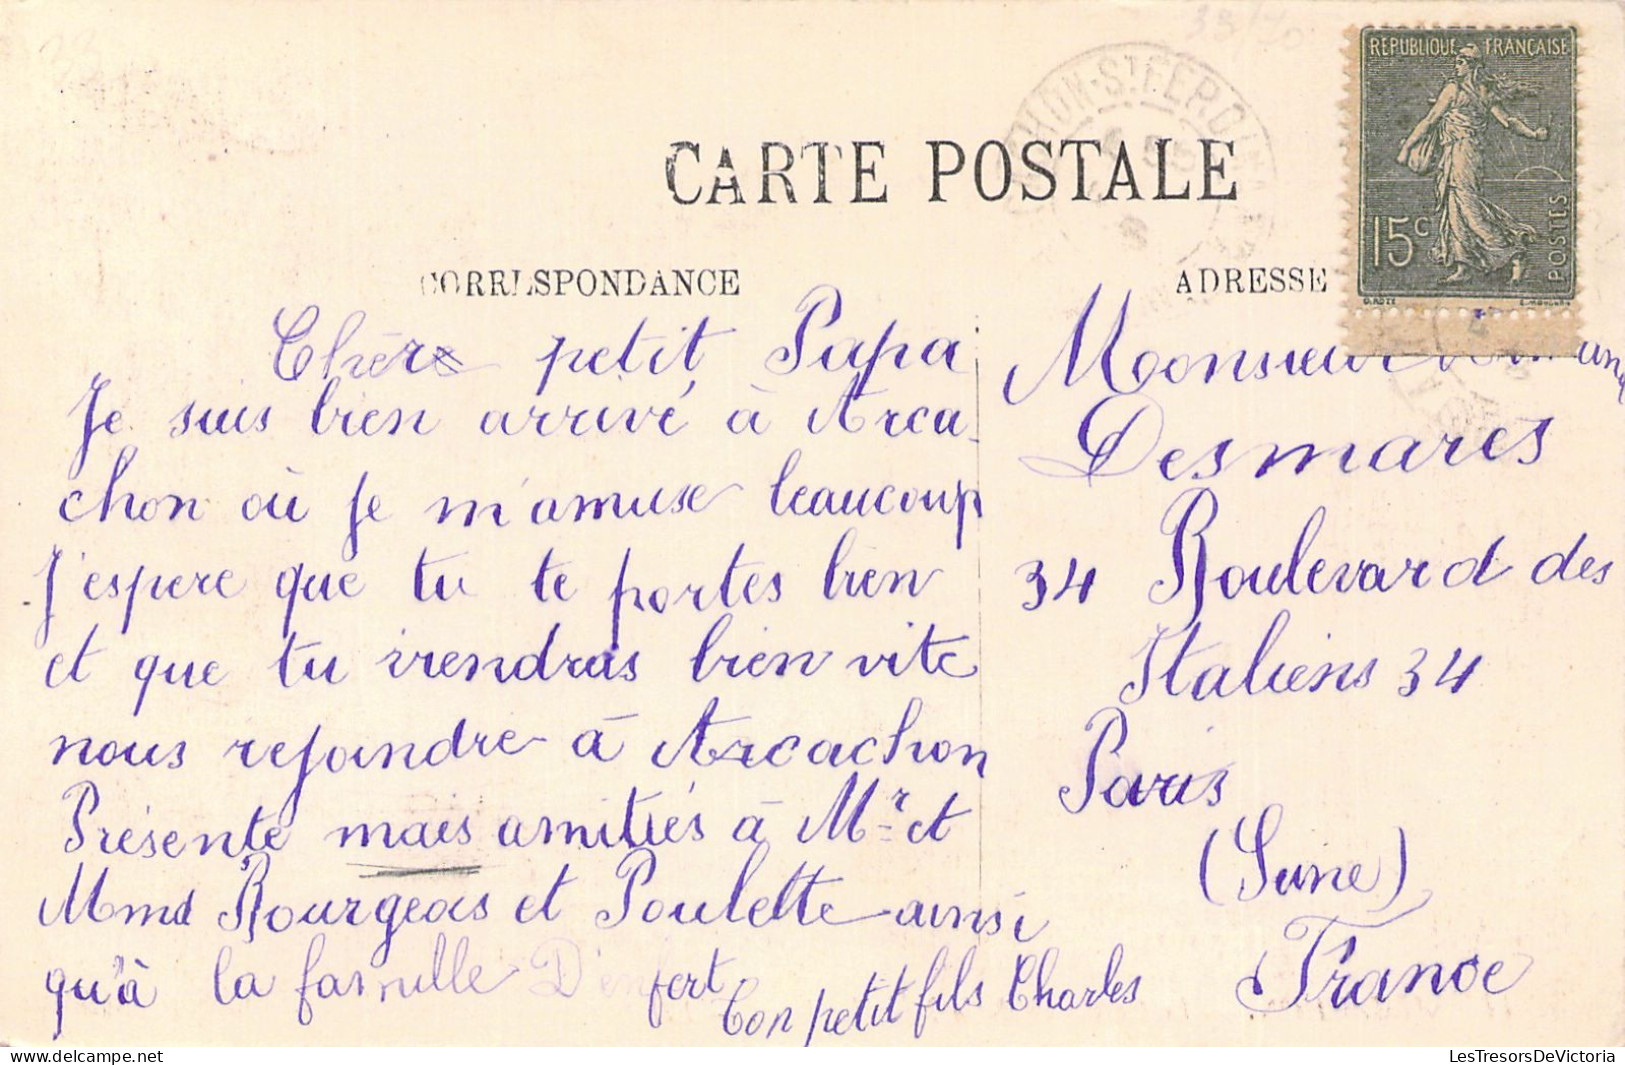 CARTE POSTALE
RÉPUBLIQUE FRANÇAISE
15c
POSTES
CORRESPONDANCE
Chère petit Papa
Je suis bien arrivé à Arca-
chon où je m'amuse beaucoup
J'espere que tu te portes bien
et que tu viendras bien vite
nous rejoindre à Arcachon
Présente mais amitiés à Mr et
Mmd Bourgeois et Poulette ainsi
qu'à la famille D'enfert
Ton petit fils Charles
ADRESSE
Monsieur
Desmares
34 Boulevard des
Italiens 34
Paris
(Seine)
France
LesTresorsDeVictoria